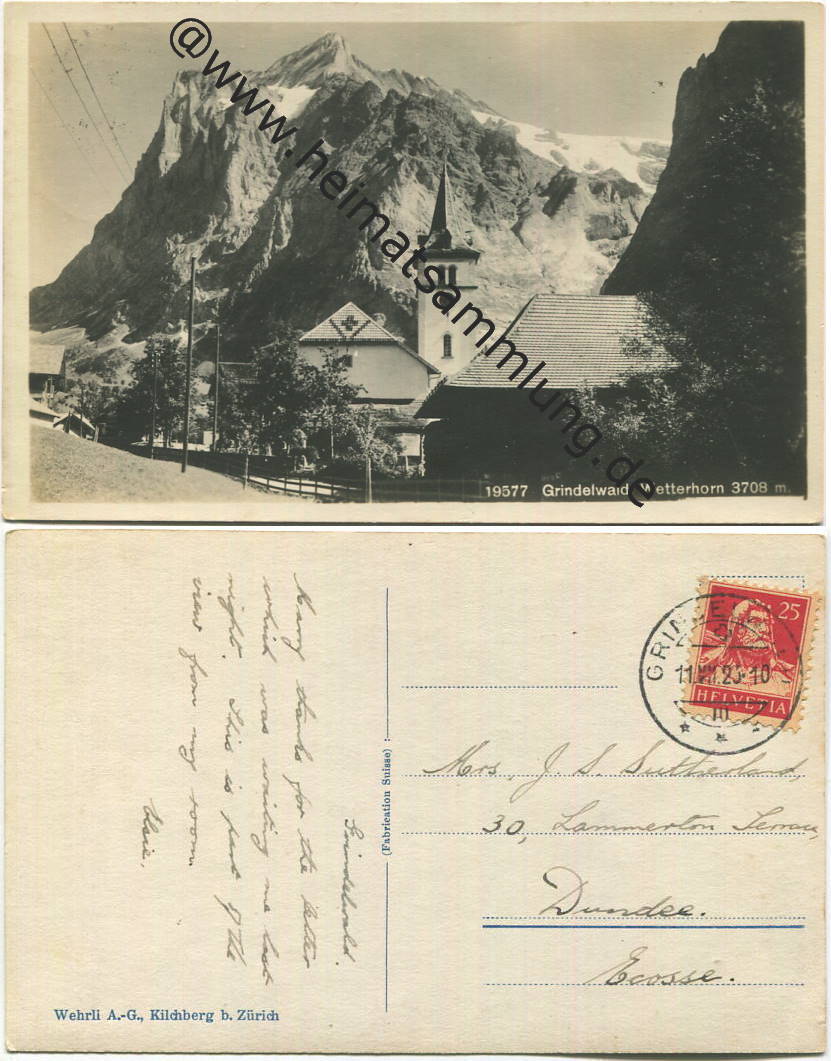 @www.heimatsammlung.de
19577 Grindelwald Wetterhorn 3708 m.
Grindelwald.
Many thanks for the letter
which was waiting me last
night. This is part of the
view from my room.
Elsie.
(Fabrication Suisse)
Wehrli A.-G., Kilchberg b. Zürich
25
HELVETIA
Mrs. J. S. Sutherland,
30, Lammerton Terrace,
Dundee.
Ecosse.